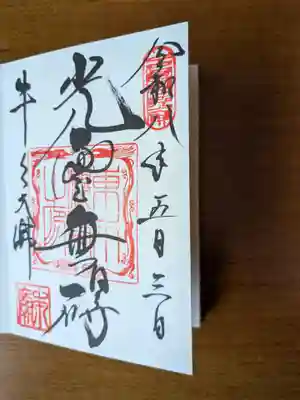 令和八年五月三日
光雲無碍
牛久大佛